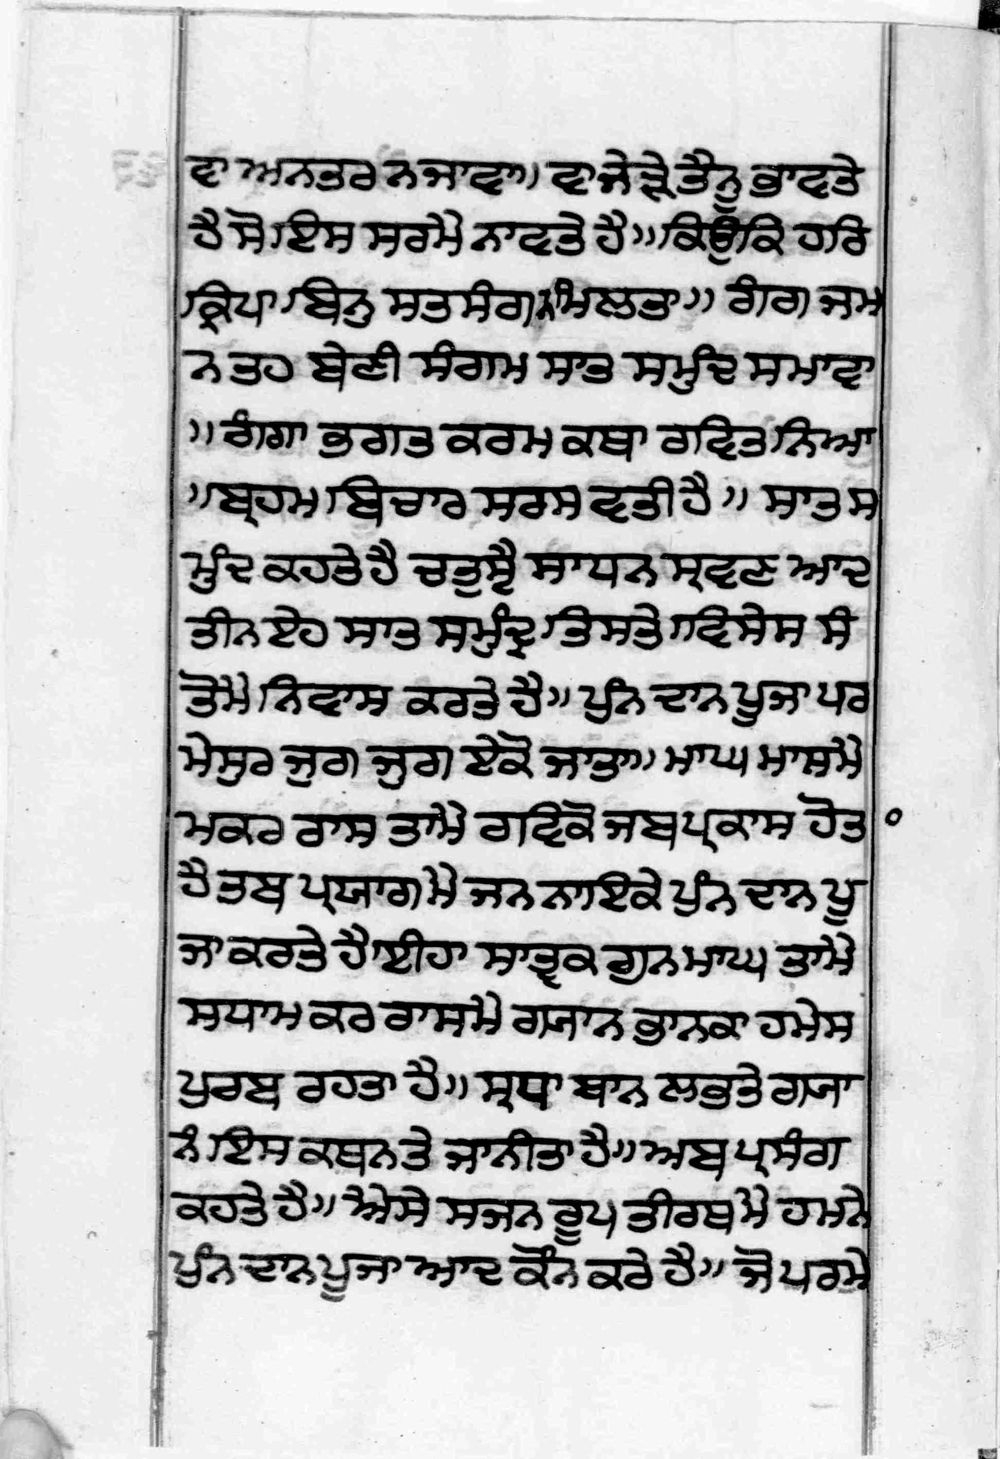 ਵਾ ਅਨਤਰ ਨ ਜਾਵਾ॥ ਵਾ ਜੇੜੇ ਤੈਨੂ ਭਾਵਤੇ
ਹੈ ਸੋ ਇਸ ਸਰਮੈ ਨਾਵਤੇ ਹੈ॥ ਕਿਉਕਿ ਹਰਿ
ਕ੍ਰਿਪਾ ਬਿਨੁ ਸਤ ਸੰਗ ਨ ਮਿਲਤਾ॥ ਗੰਗ ਜਮ
ਨ ਤਹ ਬੇਣੀ ਸੰਗਮ ਸਾਤ ਸਮੁੰਦ ਸਮਾਵਾ
॥ ਗੰਗਾ ਭਗਤ ਕਰਮ ਕਥਾ ਰਵਿਤ ਨਿਆ
॥ ਬ੍ਰਹਮ ਬਿਚਾਰ ਸਰਸਵਤੀ ਹੈ॥ ਸਾਤ ਸ
ਮੁੰਦ ਕਹਤੇ ਹੈ ਚਤੁਸ੍ਟੈ ਸਾਧਨ ਸ੍ਰਵਣ ਆਦ
ਤੀਨ ਏਹ ਸਾਤ ਸਮੁੰਦ੍ਰ ਤਿਸਤੇ ਵਿਸੇਸ ਸੰ
ਤੋਮੈ ਨਿਵਾਸ ਕਰਤੇ ਹੈ॥ ਪੁੰਨ ਦਾਨ ਪੂਜਾ ਪਰ
ਮੇਸੁਰ ਜੁਗ ਜੁਗ ਏਕੋ ਜਾਤਾ॥ ਮਾਘ ਮਾਸਮੈ
ਮਕਰ ਰਾਸ ਤਾਮੈ ਰਵਿਕੋ ਜਬ ਪ੍ਰਕਾਸ ਹੋਤ
ਹੈ ਤਬ ਪ੍ਰਯਾਗ ਮੈ ਜਨ ਨਾਇਕੇ ਪੁੰਨ ਦਾਨ ਪੂ
ਜਾ ਕਰਤੇ ਹੈ ਈਹਾ ਸਾਤ੍ਵਕ ਗੁਨ ਮਾਘ ਤਾਮੈ
ਸਧਾ ਮਕਰ ਰਾਸਮੈ ਗ੍ਯਾਨ ਭਾਨਕਾ ਹਮੇਸ
ਪੁਰਬ ਰਹਤਾ ਹੈ॥ ਸ੍ਰਧਾ ਬਾਨ ਲਭਤੇ ਗ੍ਯਾ
ਨੰ ਇਸ ਕਥਨਤੇ ਜਾਨੀਤਾ ਹੈ॥ ਅਬ ਪ੍ਰਸੰਗ
ਕਹਤੇ ਹੈ॥ ਐਸੇ ਸਜਨ ਰੂਪ ਤੀਰਥ ਮੈ ਹਮਨੇ
ਪੁੰਨ ਦਾਨ ਪੂਜਾ ਆਦ ਕੌਨ ਕਰੇ ਹੈ॥ ਜੋ ਪਰਮੇ